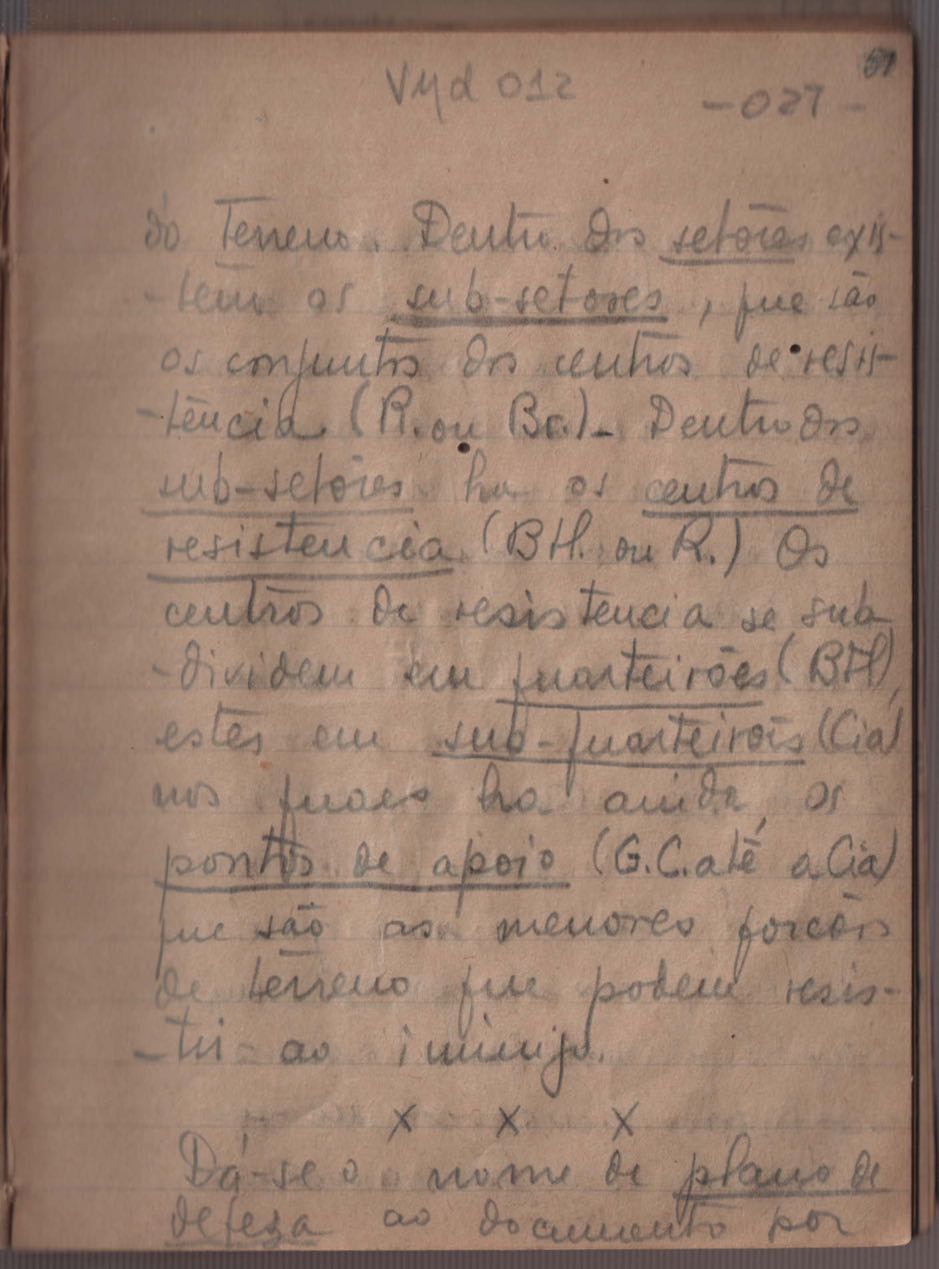 51
Vyd 012
-027-
do terreno. Dentro dos setôres exis-
-têm os sub-setores, que são
os conjuntos dos centros de resis-
-tência (R. ou Bda.) - Dentro dos
sub-setôres ha os centros de
resistencia (BH. ou R.) Os
centros de resistencia se sub-
-dividem em quarteirões (BH),
estes em sub-quarteirões (Cia)
nos quaes ha ainda, os
pontos de apoio (G.C. até a Cia)
que são as menores porcões
de terreno que podem resis-
-tir ao inimigo.
x x x
Dá-se o nome de plano de
defeza ao documento por